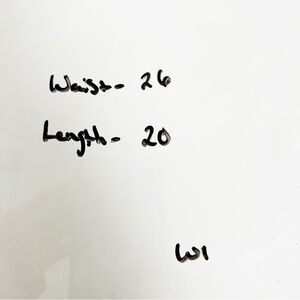 Waist- 26
Length- 20
W1